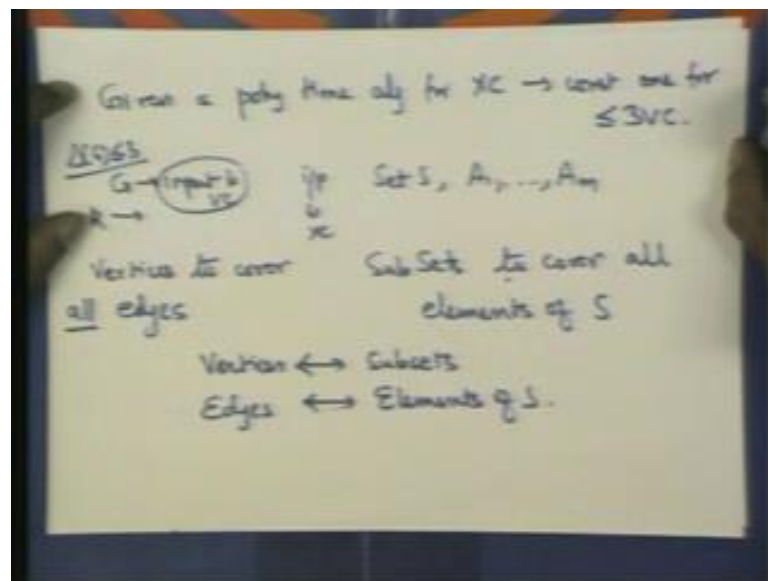 Given a poly time alg for XC → const one for
≤3VC.
G → input to VC i/p to XC Set S, A1, ..., Am
k →
Vertices to cover Subsets to cover all
all edges elements of S
Vertices ↔ Subsets
Edges ↔ Elements of S.